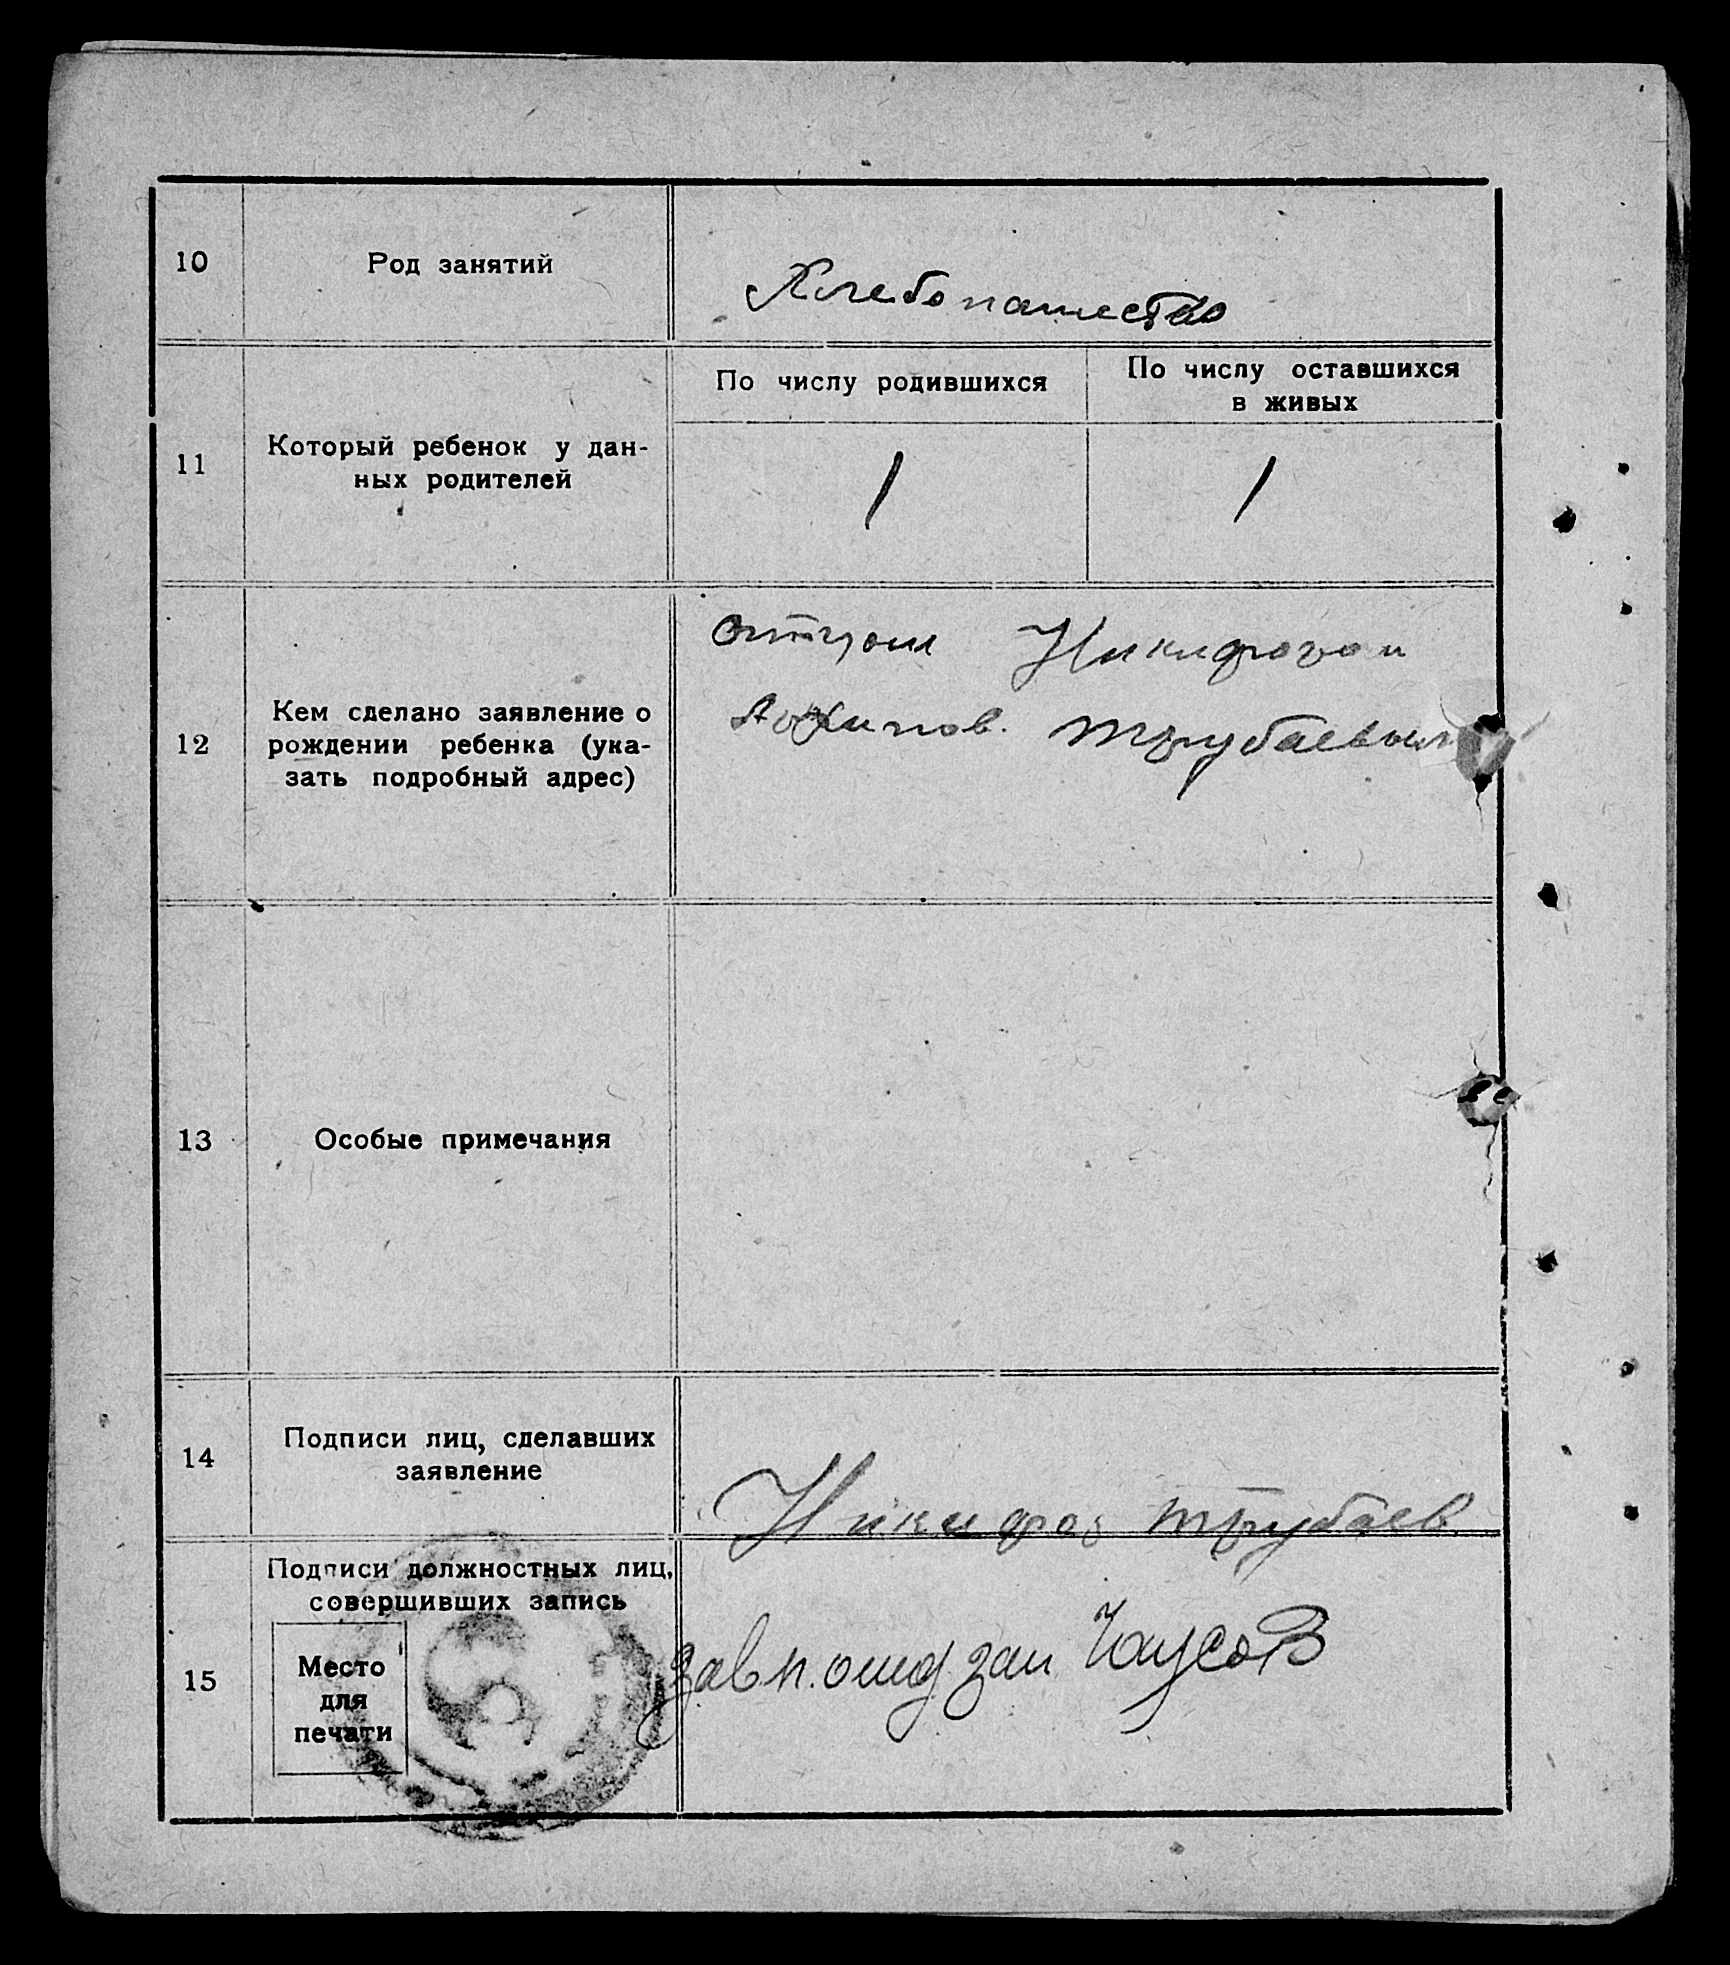 10 Род занятий Хлебопашество
11 Который ребенок у дан-
ных родителей
По числу родившихся
По числу оставшихся
в живых
1 1
12 Кем сделано заявление о
рождении ребенка (ука-
зать подробный адрес)
отцом Никифором
Архипов. Трубаевым
13 Особые примечания
14 Подписи лиц, сделавших
заявление
Никифор Трубаев
15 Подписи должностных лиц,
совершивших запись
Место
для
печати
Чаусов